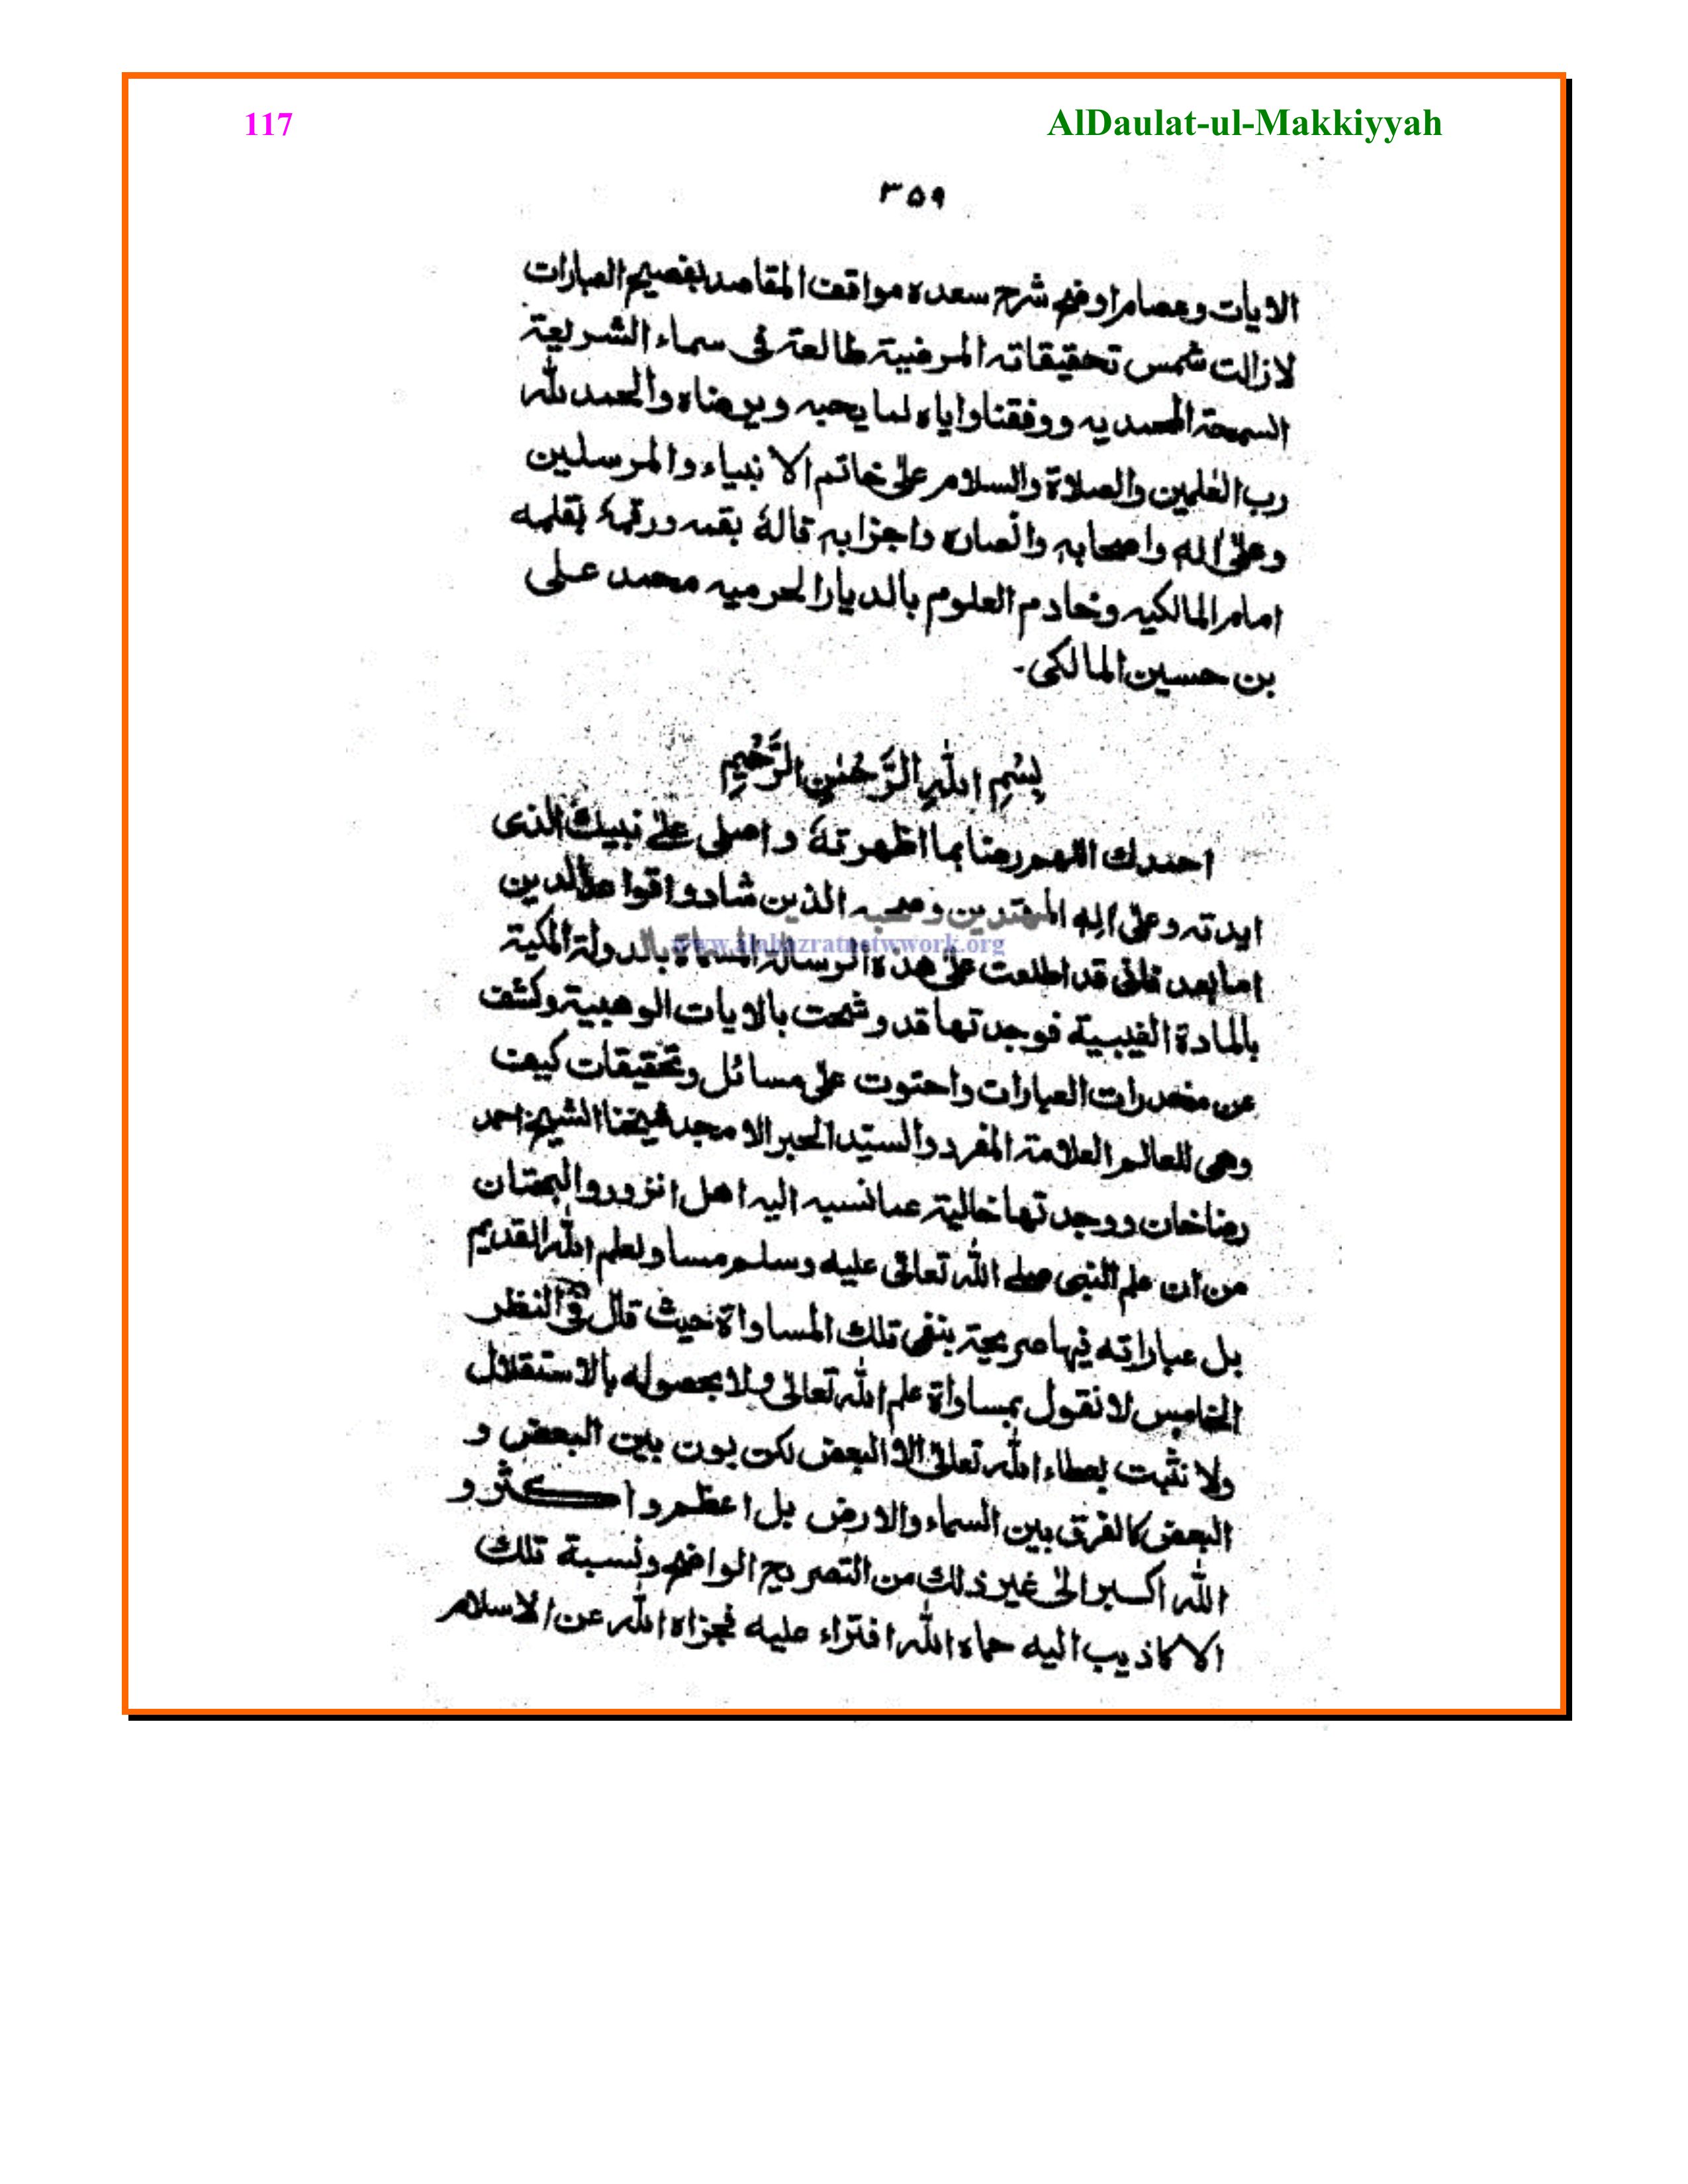 117 AlDaulat-ul-Makkiyyah
۳۵۹
الايات وعصام اوضح شرح سعده مواقف المقاصد بفصيح العبارات
لازالت شمس تحقيقاته المرضية طالعة فى سماء الشريعة
السمحة المحمديه ووفقنا واياه لما يحبه ويرضاه والحمد لله
رب العٰلمين والصلاة والسلام علىٰ خاتم الانبياء والمرسلين
وعلىٰ اله واصحابه وانصاره واحزابه قالهٗ بفمه ورقمهٗ بقلمه
امام المالكيه وخادم العلوم بالديار الحرميه محمد على
بن حسين المالكى۔
بِسْمِ اللهِ الرَّحْمٰنِ الرَّحِيْمِ
احمدك اللهم ربنا بما اظهرتهٗ واصلى علىٰ نبيك الذى
ايدته وعلىٰ اٰله المهتدين وصحبه الذين شادوا قواعد الدين
www.alahazratnetwork.org
اما بعد فانى قد اطلعت علىٰ هذه الرسالة المسماة بالدولة المكية
بالمادة الغيبية فوجدتها قد وشحت بالايات الوهبية وكشف
عن مخدرات العبارات واحتوت علىٰ مسائل وتحقيقات كيف
وهى للعالم العلامة المفرد والسيّد الحبر الامجد شيخنا الشيخ احمد
رضاخان ووجدتها خالية عما نسبه اليه اهل الزور والبهتان
من ان علم النبى صلے الله تعالىٰ عليه وسلم مساو لعلم الله القديم
بل عباراته فيها صريحة بنفى تلك المساواة حيث قال فى النظر
الخامس لا نقول بمساواة علم الله تعالىٰ ولا بحصوله بالاستقلال
ولا نثبت بعطاء الله تعالىٰ الا البعض لكن بون بين البعض و
البعض كالفرق بين السماء والارض بل اعظم واكثر و
الله اكبر الىٰ غير ذلك من التصريح الواضح ونسبة تلك
الاكاذيب اليه حماه الله افتراء عليه فجزاه الله عن الاسلام